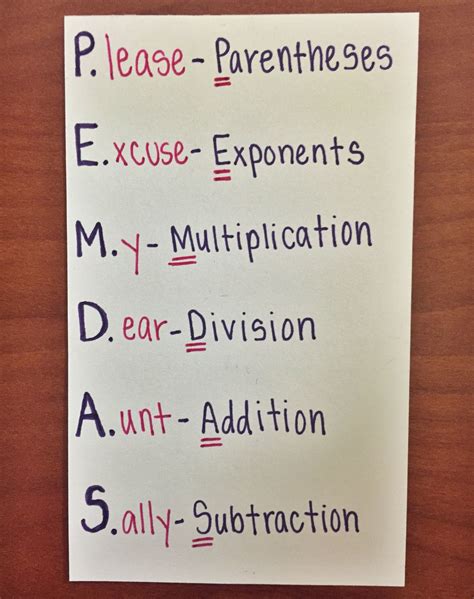 P.lease - Parentheses
E.xcuse - Exponents
M.y - Multiplication
D.ear - Division
A.unt - Addition
S.ally - Subtraction